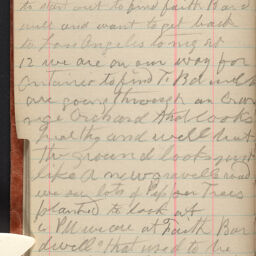 to start out to find Faith Bard
well and want to get back
to Los Angeles to night
12 we are on our way for
to find To Bdwells
are going through an Oran
nge Orchard that looks
healthy and well but
the ground looks just
like a new gravel road
we see lots of Pepper Trees
planted to look at
6 PM we are at Faith Bar
dwells that used to be